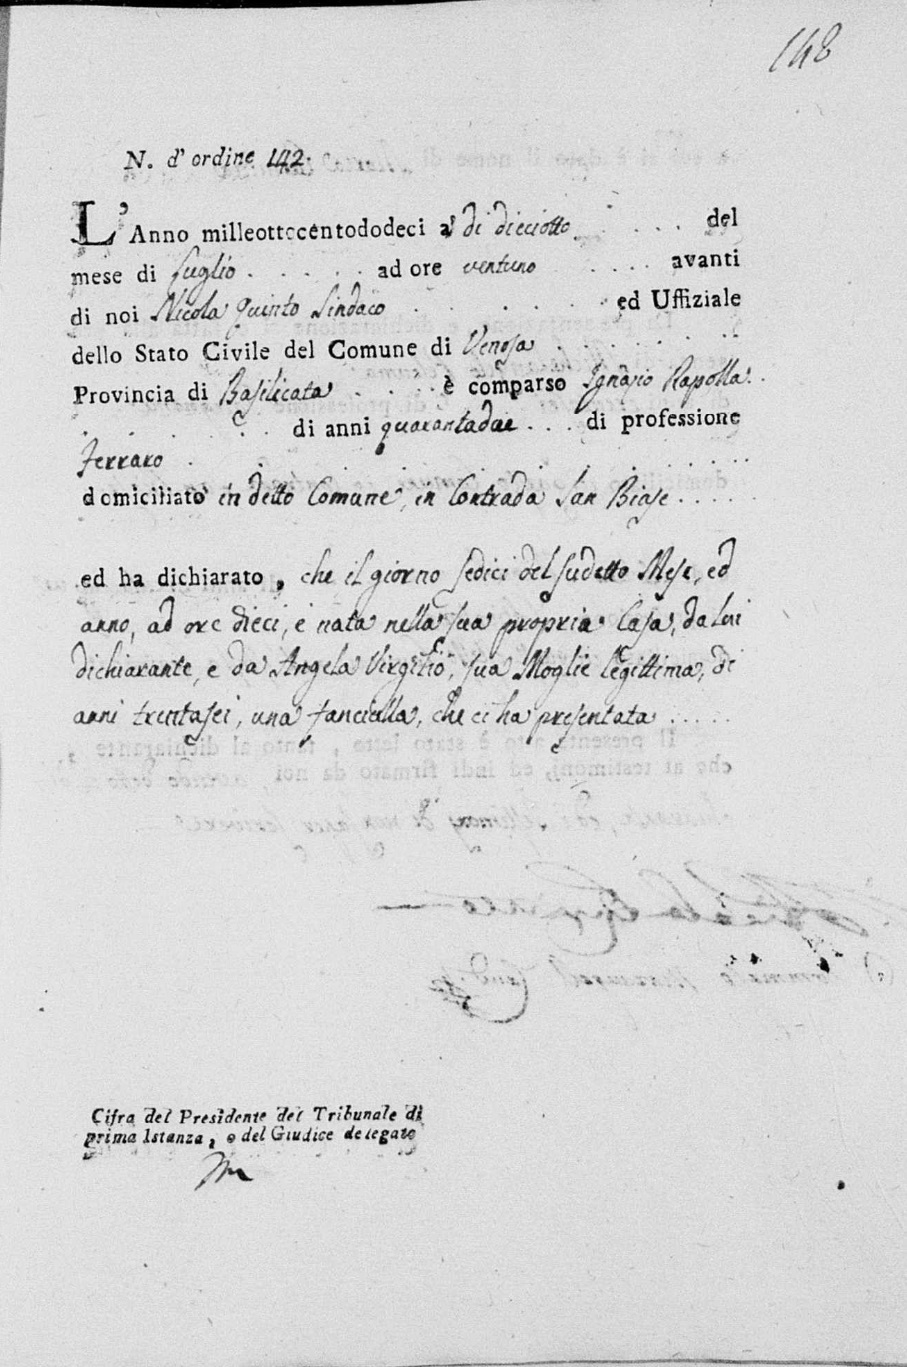 148
N. d' ordine 142.
L'Anno milleottocentododeci a' di dieciotto . . . . . del
mese di luglio . . . . . ad ore ventuno . . . . avanti
di noi Nicola Quinto Sindaco . . . . . ed Uffiziale
dello Stato Civile del Comune di Venosa . . . . . .
Provincia di Basilicata . . . . è comparso Ignazio Rapolla . .
. . . . . di anni quarantadue . . . di professione
ferraro . . . . . . . . . .
domiciliato in detto Comune, in Contrada San Biase . . . . .
ed ha dichiarato, che il giorno sedici del sudetto Mese, ed
anno, ad ore dieci, è nata nella sua propria Casa, da lui
dichiarante, e da Angela Virgilio, sua Moglie legittima, di
anni trentasei, una fanciulla, che ci ha presentata . . . . .
Cifra del Presidente del Tribunale di
prima Istanza, o del Giudice delegato